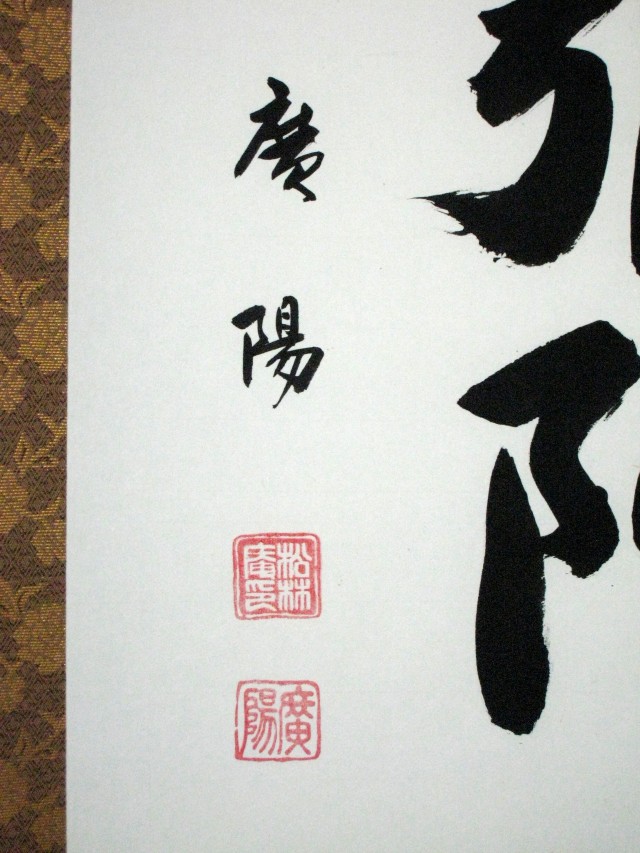 廣陽
松林
庵印
廣
陽